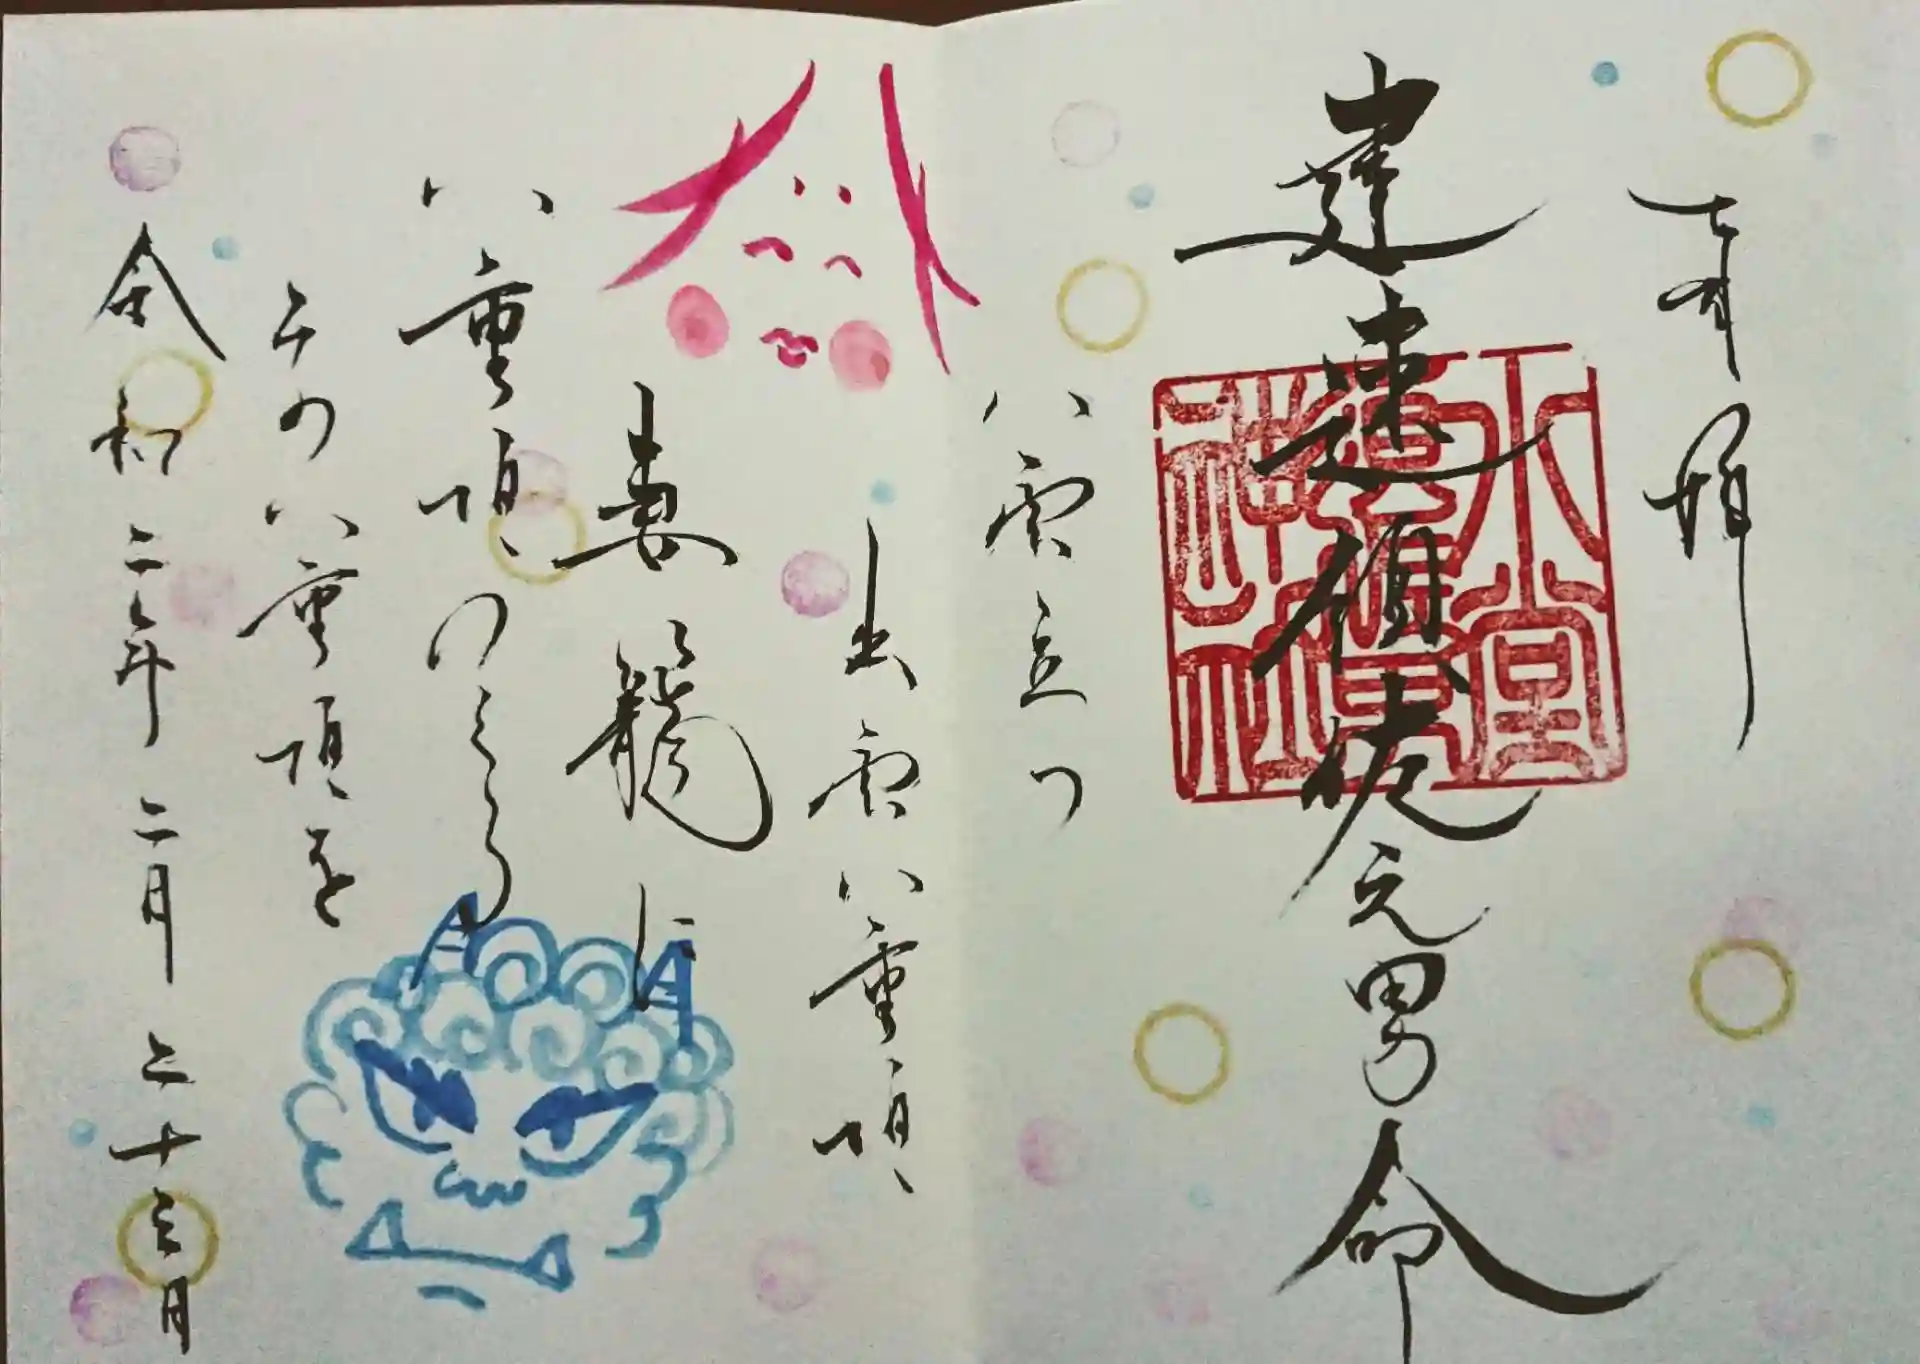 奉拝
建速須佐之男命
水堂須佐男神社
八雲立つ
出雲八重垣
妻籠に
八重垣つくる
その八重垣を
令和二年二月二十三日